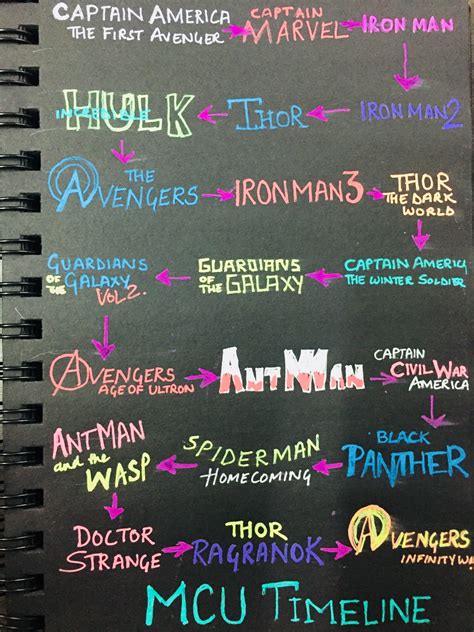 CAPTAIN AMERICA
THE FIRST AVENGER
CAPTAIN
MARVEL
IRON MAN
IRON MAN 2
THOR
INCREDIBLE
HULK
THE
AVENGERS
IRON MAN 3
THOR
THE DARK
WORLD
CAPTAIN AMERICA
THE WINTER SOLDIER
GUARDIANS
OF THE GALAXY
GUARDIANS
OF THE GALAXY
VOL 2.
AVENGERS
AGE OF ULTRON
ANTMAN
CAPTAIN
CIVIL WAR
AMERICA
BLACK
PANTHER
SPIDERMAN
HOMECOMING
ANTMAN
and the
WASP
DOCTOR
STRANGE
THOR
RAGRANOK
AVENGERS
INFINITY WA
MCU TIMELINE